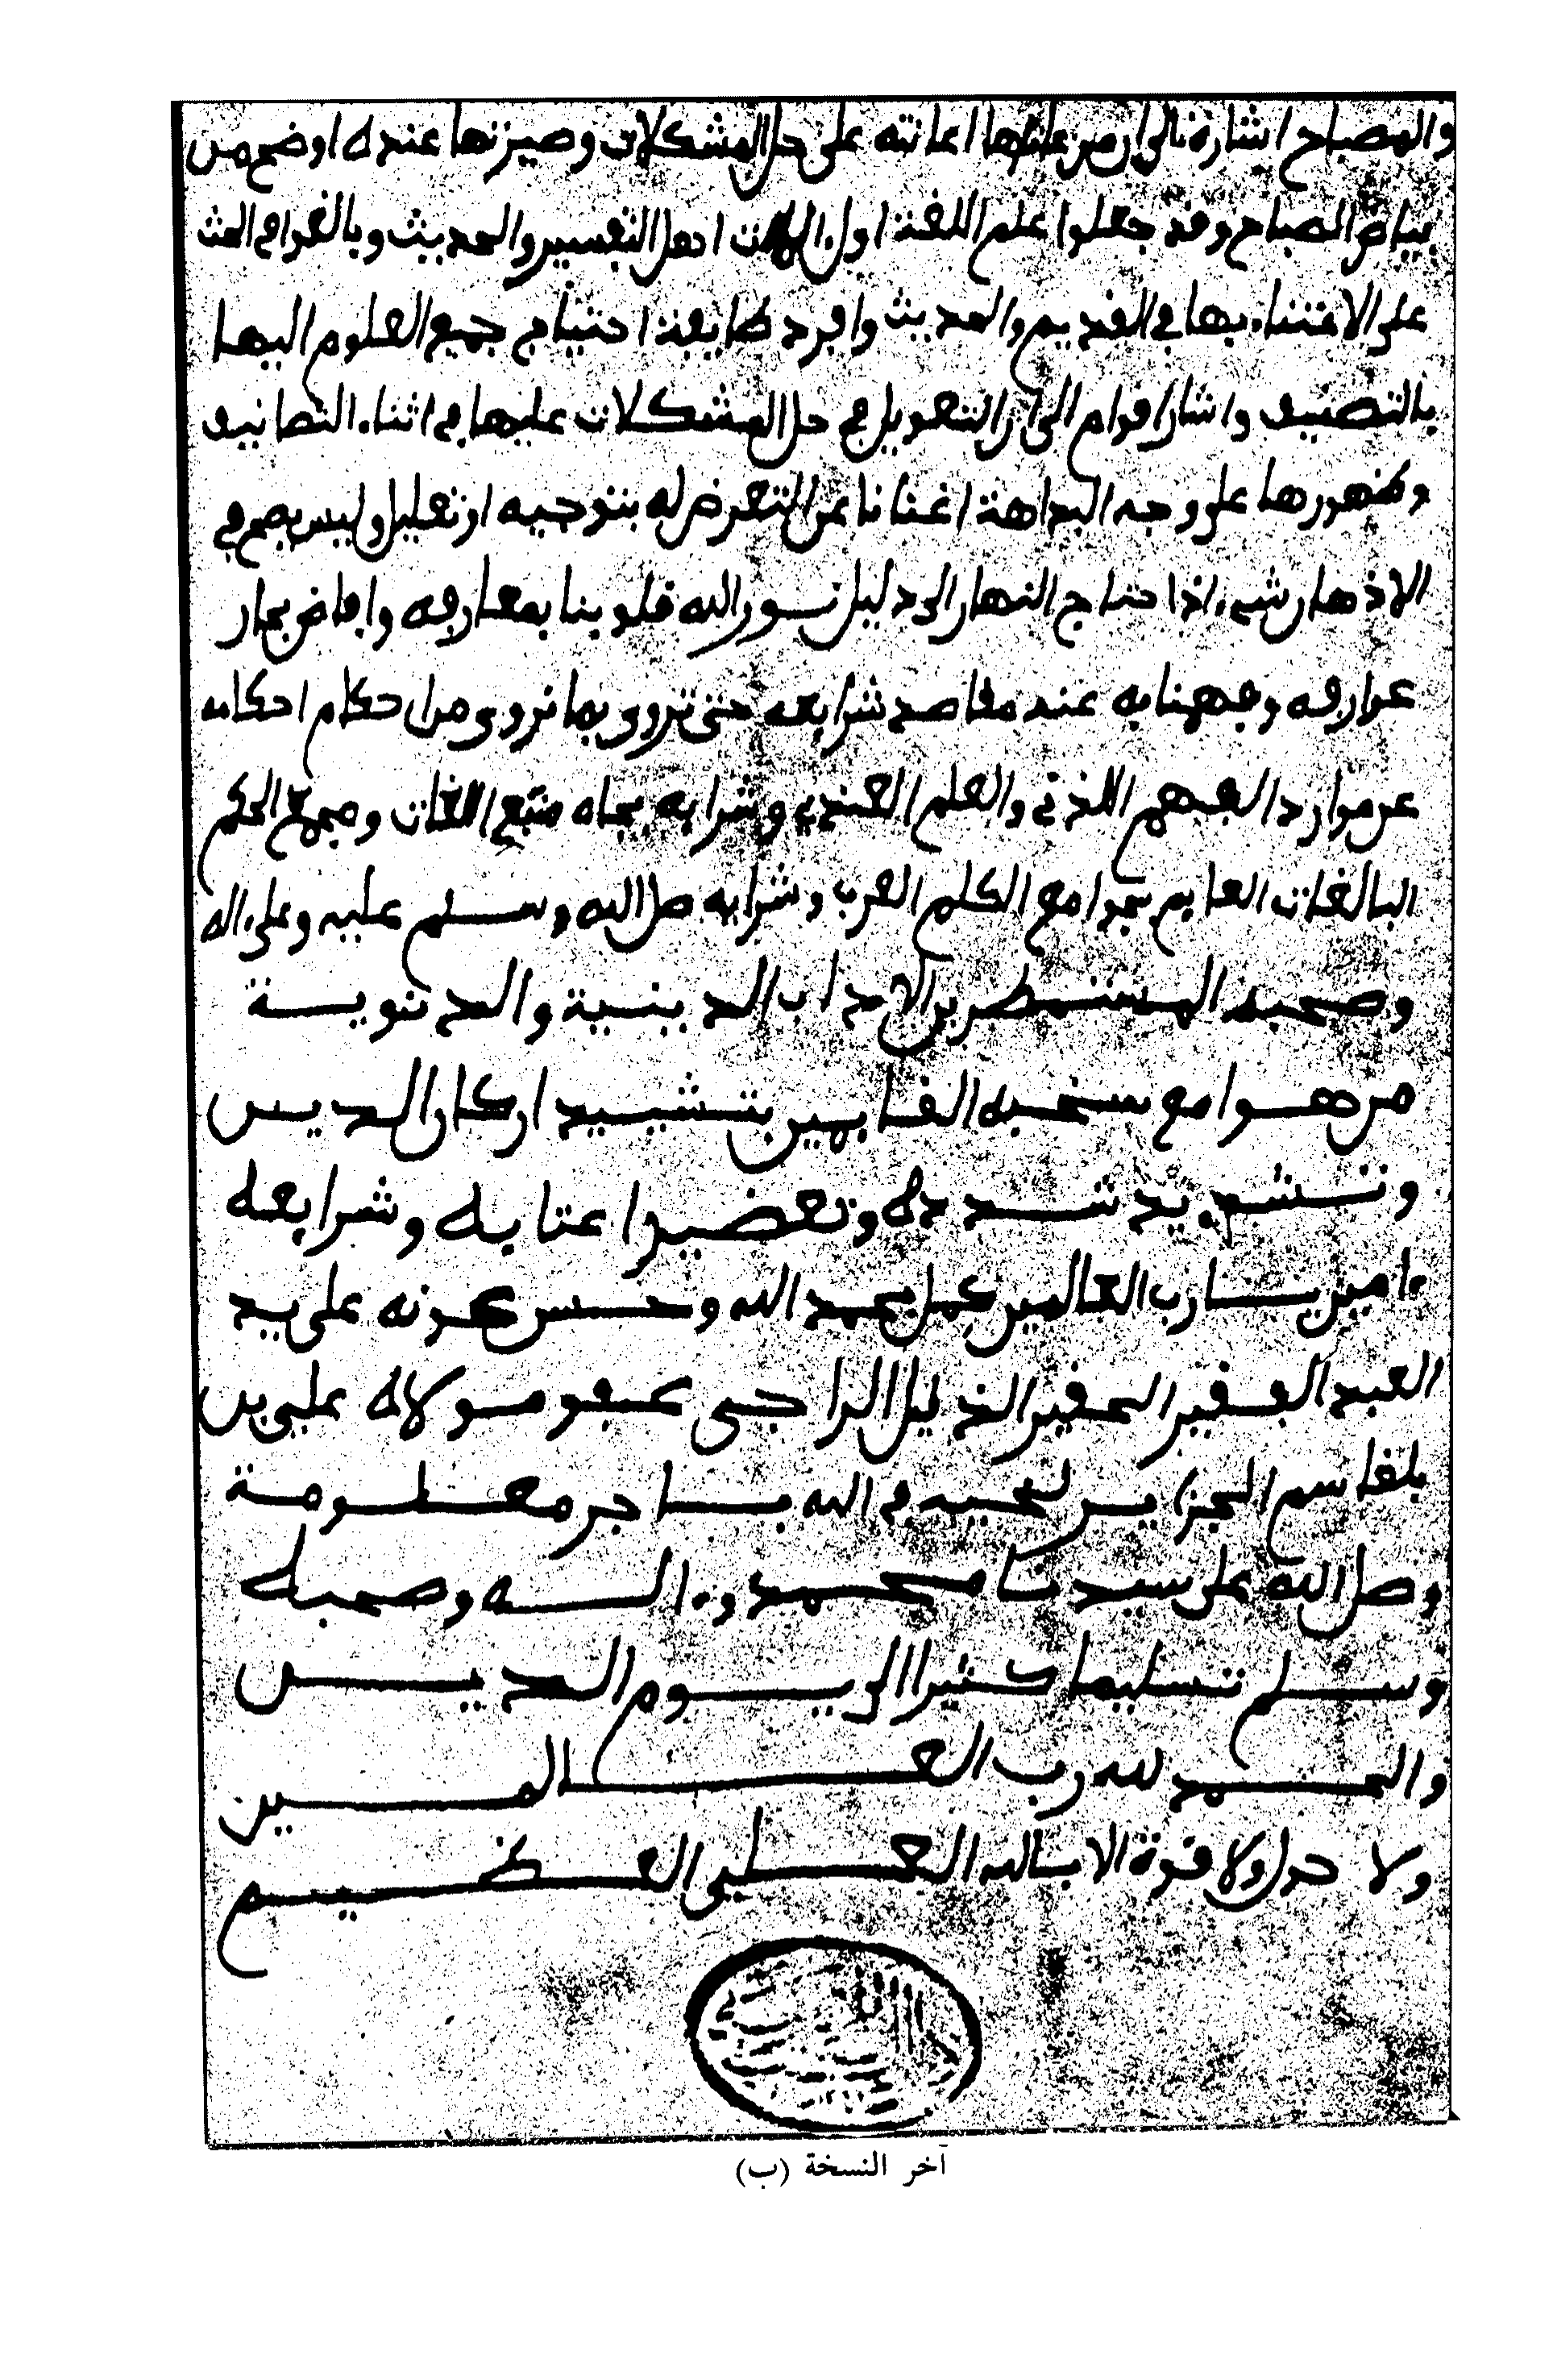 والمصباح اشارة الى ان من عاناها اعانته على حل المشكلات وصيرتها عنده اوضح من
بياض الصباح وقد جعلوا علم اللغة اول اهل التفسير والحديث وبالغوا في الحث
على الاعتناء بها في القديم والحديث وافرد طايفة احتياج جميع العلوم اليها
بالتصنيف واشار اقوام الى ان التعويل في حل المشكلات عليها في اثناء التصانيف
وظهورها على وجه البداهة اغنانا عن التعرض له بتوجيه او تعليل وليس يصح في
الاذهان شيء اذا احتاج النهار الى دليل نور الله قلوبنا بمعارفه وافاض بحار
عوارفه وفهمنا به عند مقاصد شرايعه حتى نروي بها نروي من احكام احكامه
عن موارد الفهم اللدني والعلم العندي وشرابه بجاه منبع اللغات ومجمع الحكم
البالغات الفايه بجوامع الكلم العرب وشرابه صلى الله وسلم عليه وعلى ءاله
وصحبه المستمطرين الاداب الدينية والدنوية
من هوامع سحبه القايمين بتشييد اركان الدين
وتشديد شدده وتعضيد اعتابه وشرايعه
ءامين يا رب العالمين كمل بحمد الله وحسن عونه على يد
العبد الفقير الحقير الذليل الراجي عفو مولاه علي بن
بلقاسم الجزايري لمحبه في الله باجر معلومة
وصلى الله على سيدنا محمد وءاله وصحبه
وسلم تسليما كثيرا الى يوم الدين
والحمد لله رب العالمين
ولا حول ولا قوة الا بالله العلي العظيم
آخر النسخة (ب)